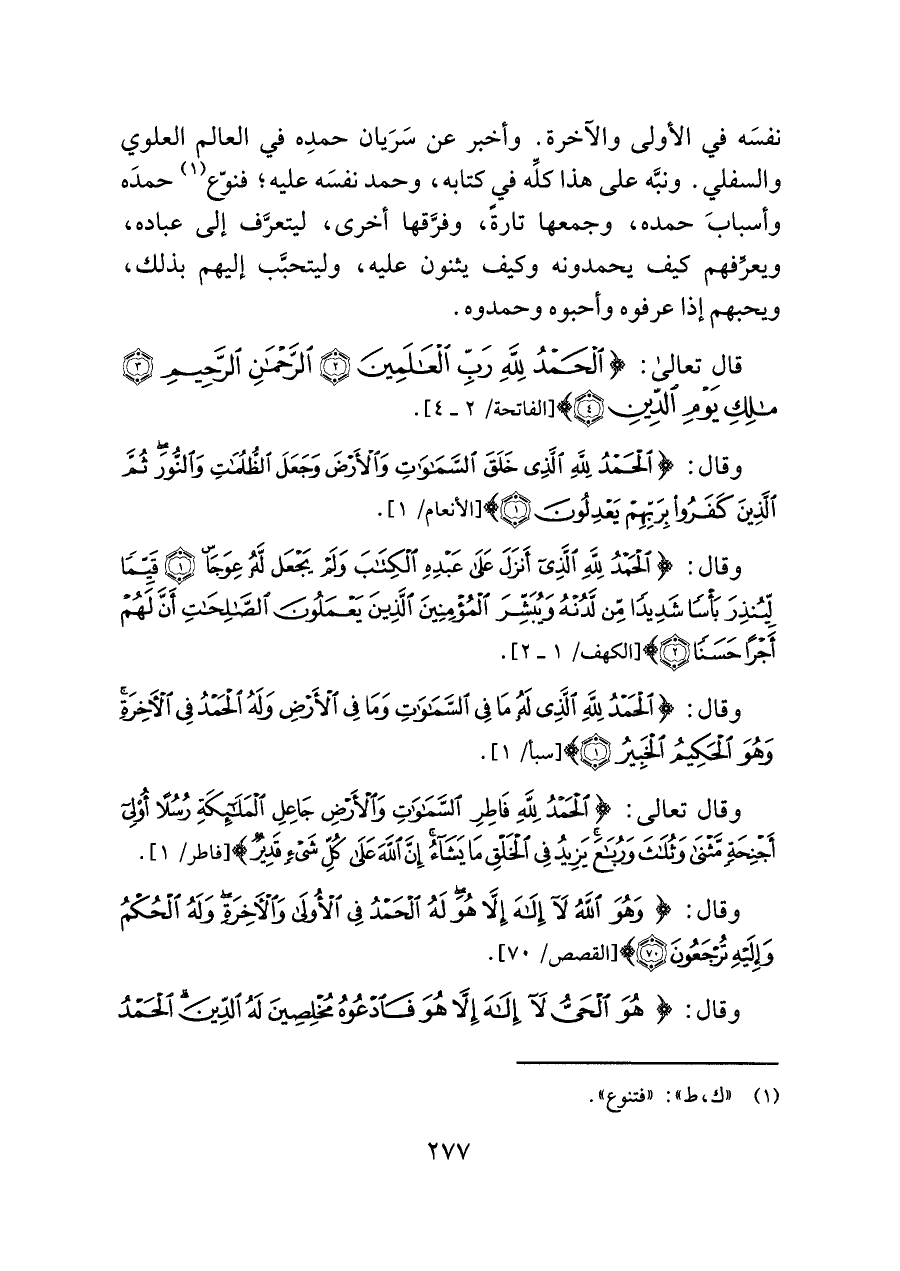 نفسَه في الأولى والآخرة. وأخبر عن سَرَيان حمدِه في العالم العلوي
والسفلي. ونبَّه على هذا كلِّه في كتابه، وحمد نفسَه عليه؛ فنوّع(١) حمدَه
وأسبابَ حمده، وجمعها تارةً، وفرَّقها أخرى، ليتعرَّف إلى عباده،
ويعرِّفهم كيف يحمدونه وكيف يثنون عليه، وليتحبَّب إليهم بذلك،
ويحبهم إذا عرفوه وأحبوه وحمدوه.
قال تعالىٰ: ﴿ ٱلْحَمْدُ لِلَّهِ رَبِّ ٱلْعَـٰلَمِينَ ۝٢ ٱلرَّحْمَـٰنِ ٱلرَّحِيمِ ۝٣
مَـٰلِكِ يَوْمِ ٱلدِّينِ ۝٤﴾[الفاتحة/ ٢ ـ ٤].
وقال: ﴿ ٱلْحَمْدُ لِلَّهِ ٱلَّذِى خَلَقَ ٱلسَّمَـٰوَٰتِ وَٱلْأَرْضَ وَجَعَلَ ٱلظُّلُمَـٰتِ وَٱلنُّورَ ۖ ثُمَّ
ٱلَّذِينَ كَفَرُوا۟ بِرَبِّهِمْ يَعْدِلُونَ ۝١﴾[الأنعام/ ١].
وقال: ﴿ ٱلْحَمْدُ لِلَّهِ ٱلَّذِىٓ أَنزَلَ عَلَىٰ عَبْدِهِ ٱلْكِتَـٰبَ وَلَمْ يَجْعَل لَّهُۥ عِوَجَاۜ ۝١ قَيِّمًا
لِّيُنذِرَ بَأْسًا شَدِيدًا مِّن لَّدُنْهُ وَيُبَشِّرَ ٱلْمُؤْمِنِينَ ٱلَّذِينَ يَعْمَلُونَ ٱلصَّـٰلِحَـٰتِ أَنَّ لَهُمْ
أَجْرًا حَسَنًا ۝٢﴾[الكهف/ ١ ـ ٢].
وقال: ﴿ ٱلْحَمْدُ لِلَّهِ ٱلَّذِى لَهُۥ مَا فِى ٱلسَّمَـٰوَٰتِ وَمَا فِى ٱلْأَرْضِ وَلَهُ ٱلْحَمْدُ فِى ٱلْـَٔاخِرَةِ ۚ
وَهُوَ ٱلْحَكِيمُ ٱلْخَبِيرُ ۝١﴾[سبأ/ ١].
وقال تعالى: ﴿ ٱلْحَمْدُ لِلَّهِ فَاطِرِ ٱلسَّمَـٰوَٰتِ وَٱلْأَرْضِ جَاعِلِ ٱلْمَلَـٰٓئِكَةِ رُسُلًا أُو۟لِىٓ
أَجْنِحَةٍ مَّثْنَىٰ وَثُلَـٰثَ وَرُبَـٰعَ ۚ يَزِيدُ فِى ٱلْخَلْقِ مَا يَشَآءُ ۚ إِنَّ ٱللَّهَ عَلَىٰ كُلِّ شَىْءٍ قَدِيرٌ﴾[فاطر/ ١].
وقال: ﴿ وَهُوَ ٱللَّهُ لَآ إِلَـٰهَ إِلَّا هُوَ ۖ لَهُ ٱلْحَمْدُ فِى ٱلْأُولَىٰ وَٱلْـَٔاخِرَةِ ۖ وَلَهُ ٱلْحُكْمُ
وَإِلَيْهِ تُرْجَعُونَ ۝٧٠﴾[القصص/ ٧٠].
وقال: ﴿ هُوَ ٱلْحَىُّ لَآ إِلَـٰهَ إِلَّا هُوَ فَٱدْعُوهُ مُخْلِصِينَ لَهُ ٱلدِّينَ ۗ ٱلْحَمْدُ
(١) «ك، ط»: «فتنوع».
٢٧٧